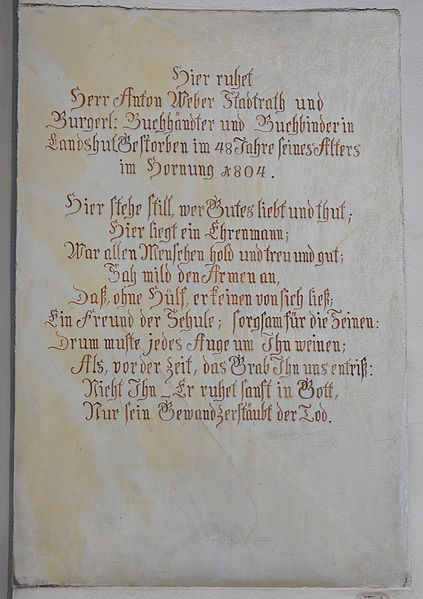 Hier ruhet
Herr Anton Weber Stadtrath und
Burgerl: Buchhändter und Buchbinder in
Landshut, Gestorben im 48 Jahre seines Alters
im Hornung 1804.
Hier stehe still, wer Gutes liebt und thut;
Hier liegt ein Ehrenmann;
War allen Menschen hold und treu und gut;
Sah mild den Armen an,
Daß, ohne Hülf, er keinen von sich ließ;
Ein Freund der Schule; sorgsam für die Seinen:
Drum mußte jedes Auge um Ihn weinen;
Als, vor der Zeit, das Grab Ihn uns entriß:
Nicht Ihn _ Er ruhet sanft in Gott,
Nur sein Gewand zerstäubt der Tod.